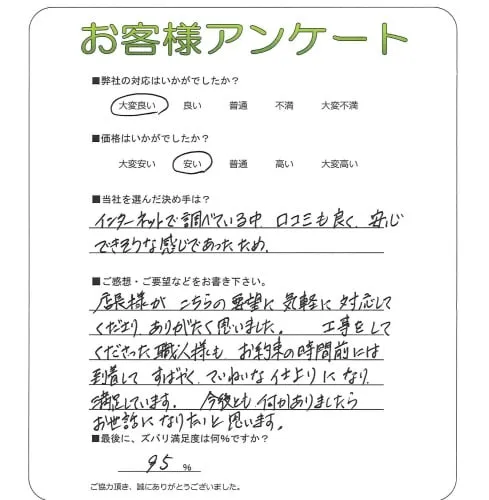 お客様アンケート
■弊社の対応はいかがでしたか?
大変良い 良い 普通 不満 大変不満
■価格はいかがでしたか?
大変安い 安い 普通 高い 大変高い
■当社を選んだ決め手は?
インターネットで調べている中、口コミも良く、安心
できそうな感じであったため。
■ご感想・ご要望などをお書き下さい。
店長様が こちらの要望に 気軽に 対応して
くださり ありがたく思いました。 工事をして
くださった職人様も お約束の時間前には
到着して すばやく、ていねいな仕上りになり
満足しています。 今後とも 何かありましたら
お世話になりたいと思います。
■最後に、ズバリ満足度は何%ですか?
95 %
ご協力頂き、誠にありがとうございました。